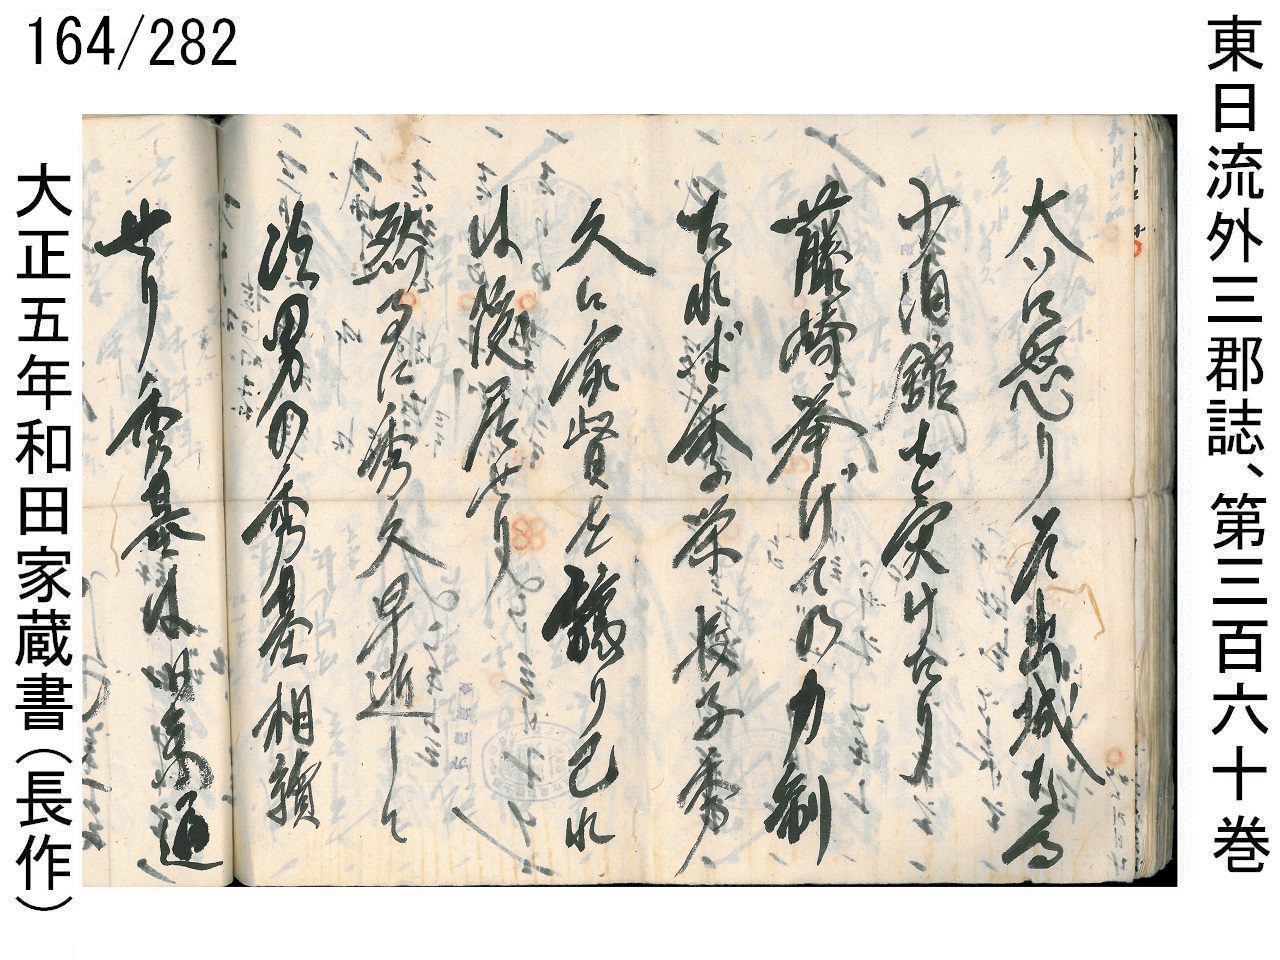 164/282
東日流外三郡誌、第三百六十巻
大いに怒り若出城なる
小泊舘を突けたり
藤崎挙げての力制
たれば季栄長子秀
久に家督を譲り己れ
は隠居せり
然るに秀久早逝して
次男の秀基相續
せり秀基は
大正五年和田家蔵書(長作)